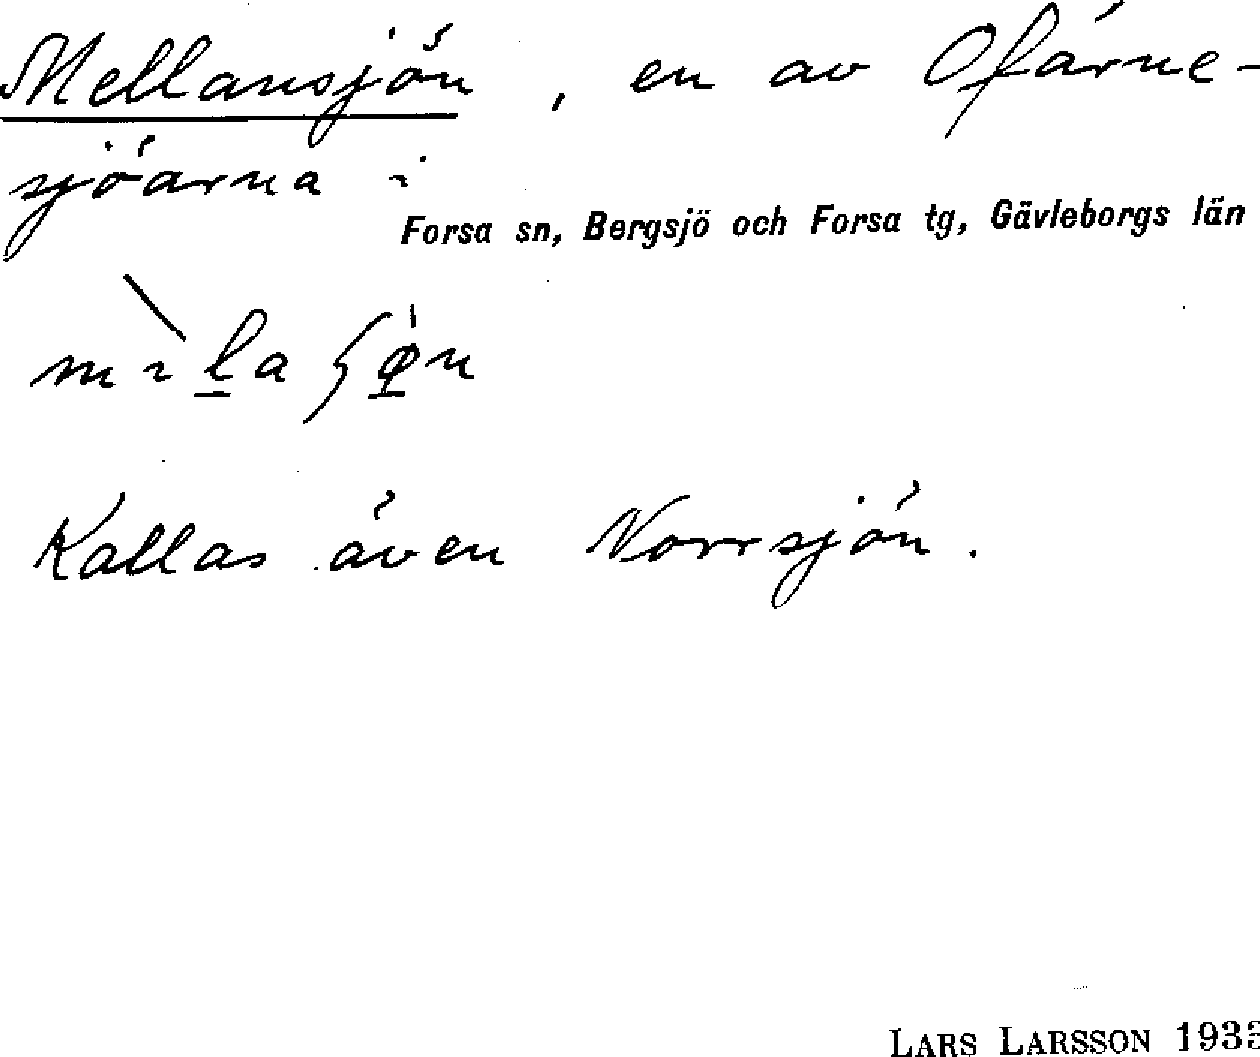 Mellansjön, en av Ofärne-
sjöarna i
Forsa sn, Bergsjö och Forsa tg, Gävleborgs län
Kallas även Norrsjön.
LARS LARSSON